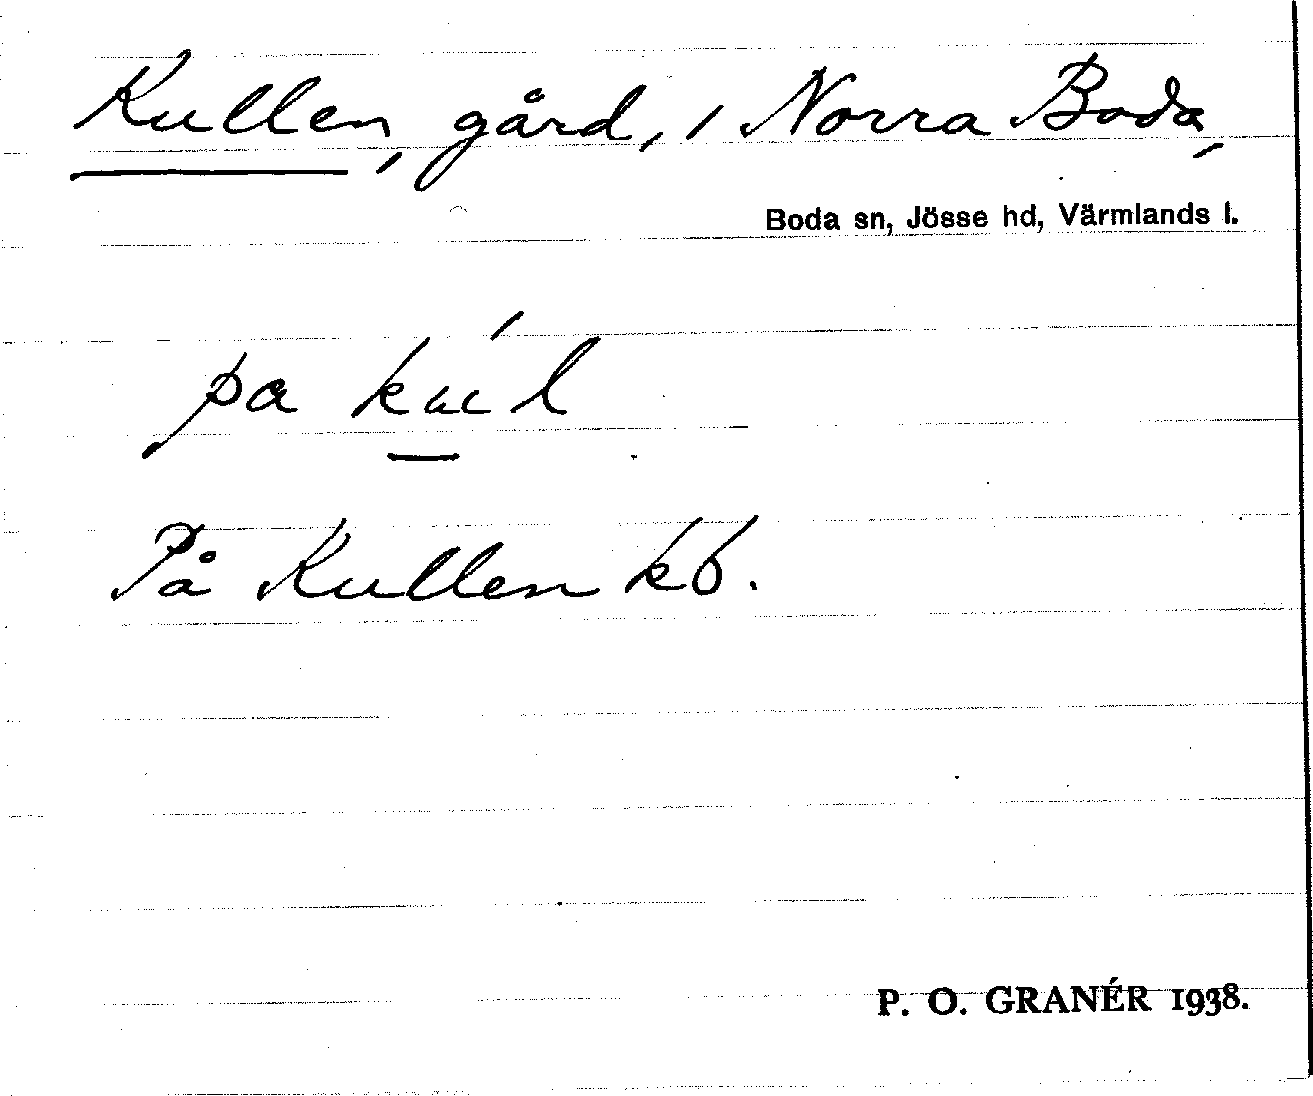 Kullen, gård, i Norra Boda,
Boda sn, Jösse hd, Värmlands l.
På Kullen kb.
P. O. GRANÉR 1938.